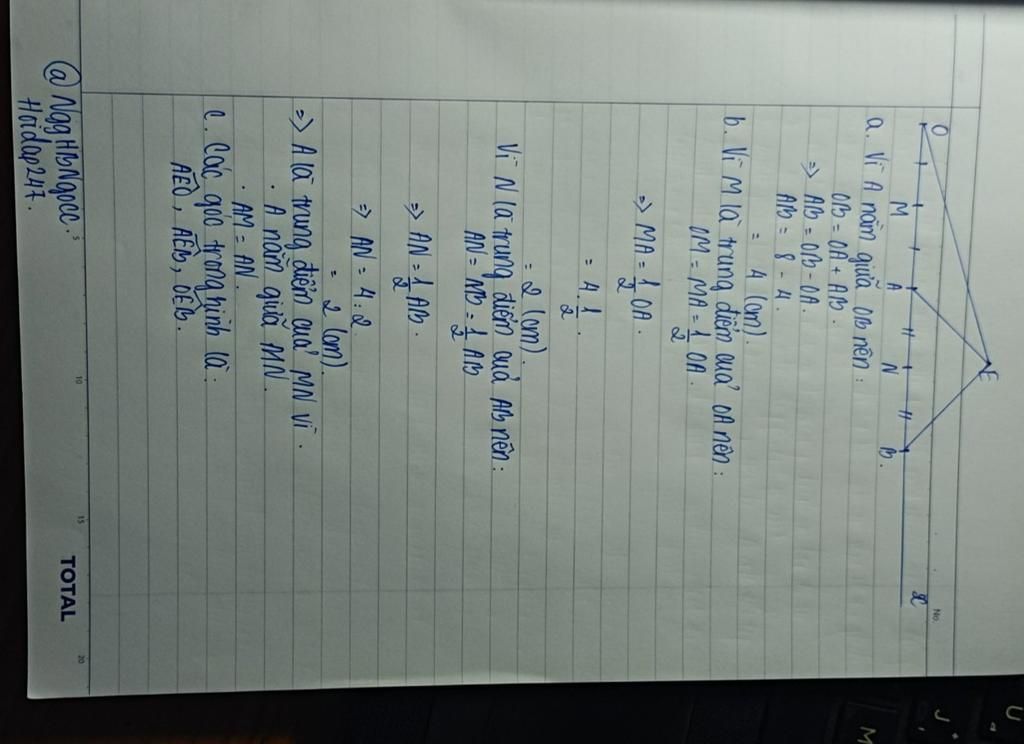 No.
E
O M A N B. x
a. Vì A nằm giữa OB nên:
OB = OA + AB.
=> AB = OB - OA.
AB = 8 - 4
= 4 (cm).
b. Vì M là trung điểm của OA nên:
OM = MA = 1/2 OA.
=> MA = 1/2 OA.
= 4. 1/2.
= 2 (cm).
Vì N là trung điểm của AB nên:
AN = NB = 1/2 AB
=> AN = 1/2 AB.
=> AN = 4 : 2
= 2 (cm).
=> A là trung điểm của MN vì.
. A nằm giữa MN.
. AM = AN.
c. Các góc trong hình là:
AEO, AEB, OEB.
5 10 15 TOTAL 20
@ NggHbNgocc.
Hoidap247.
U
J
M